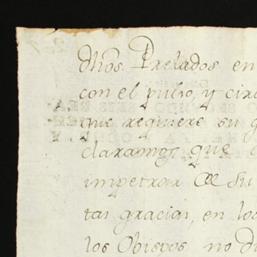 dhos Prelados en
con el pulso y circ
que requiere su g
claramos, que
impetrar de su
tas gracias, en lo
los Obispos no d